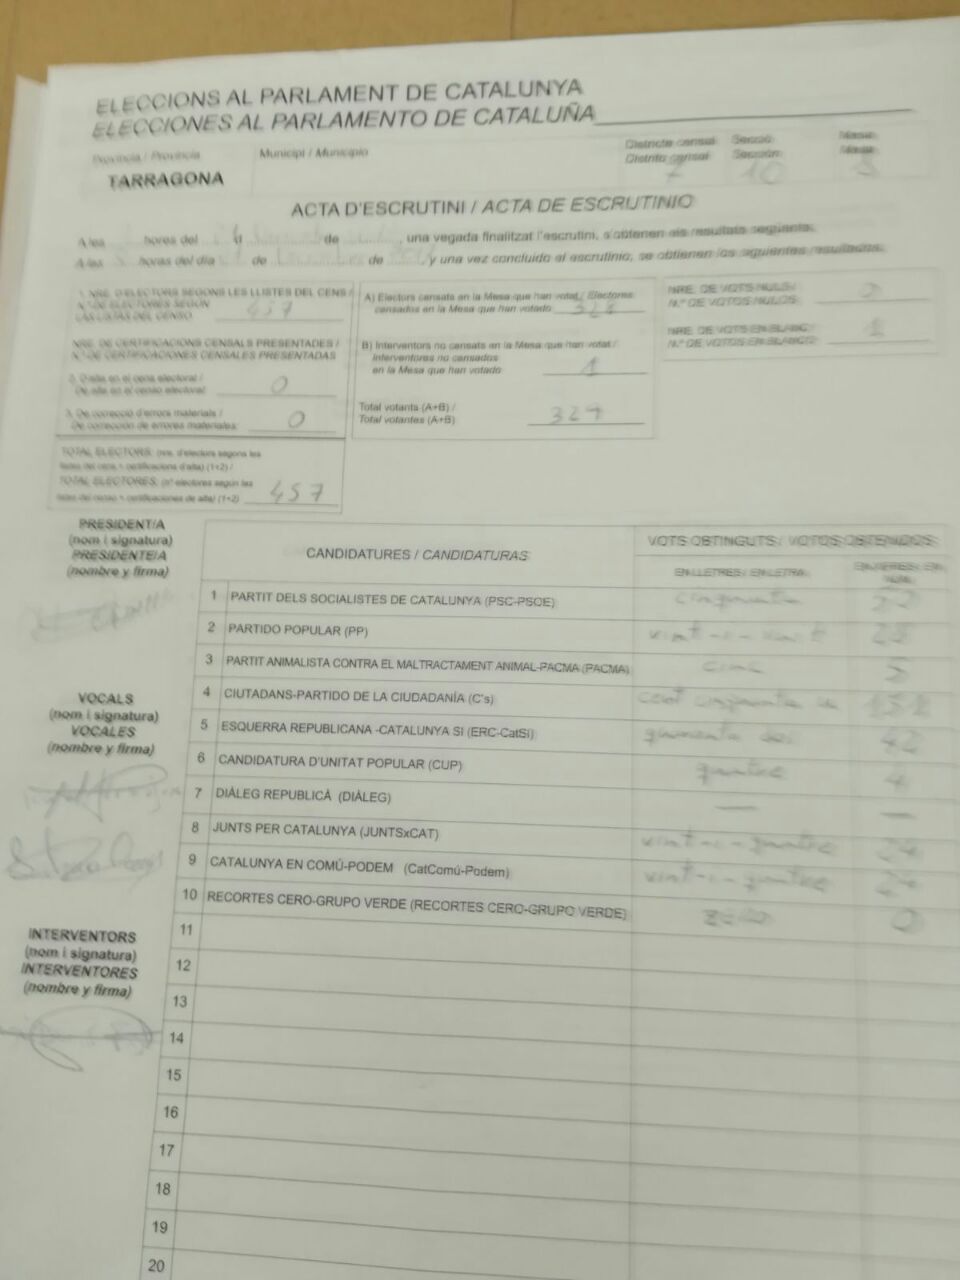 ELECCIONS AL PARLAMENT DE CATALUNYA
ELECCIONES AL PARLAMENTO DE CATALUÑA
Provincia / Provincia
Municipi / Municipio
Districte censal
Secció
Mesa
Distrito censal
Sección
Mesa
TARRAGONA
7
10
ACTA D'ESCRUTINI / ACTA DE ESCRUTINIO
A les hores del d de , una vegada finalitzat l'escrutini, s'obtenen els resultats següents:
A las horas del día de de y una vez concluido el escrutinio, se obtienen los siguientes resultados:
1. NRE. D'ELECTORS SEGONS LES LLISTES DEL CENS /
N.º DE ELECTORES SEGÚN
LAS LISTAS DEL CENSO
457
NRE. DE CERTIFICACIONS CENSALS PRESENTADES /
N.º DE CERTIFICACIONES CENSALES PRESENTADAS
2. D'alta en el cens electoral /
De alta en el censo electoral:
0
3. De correcció d'errors materials /
De corrección de errores materiales:
0
TOTAL ELECTORS: (nre. d'electors segons les
llistes del cens + certificacions d'alta) (1+2) /
TOTAL ELECTORES: (nº electores según las
listas del censo + certificaciones de alta) (1+2)
457
A) Electors censats en la Mesa que han votat / Electores
censados en la Mesa que han votado
328
B) Interventors no censats en la Mesa que han votat /
Interventores no censados
en la Mesa que han votado
1
Total votants (A+B) /
Total votantes (A+B)
329
NRE. DE VOTS NULS /
N.º DE VOTOS NULOS:
NRE. DE VOTS EN BLANC /
N.º DE VOTOS EN BLANCO:
1
PRESIDENT/A
(nom i signatura)
PRESIDENTE/A
(nombre y firma)
VOCALS
(nom i signatura)
VOCALES
(nombre y firma)
INTERVENTORS
(nom i signatura)
INTERVENTORES
(nombre y firma)
CANDIDATURES / CANDIDATURAS
VOTS OBTINGUTS / VOTOS OBTENIDOS
EN LLETRES / EN LETRA
EN XIFRES / EN NÚM.
1 PARTIT DELS SOCIALISTES DE CATALUNYA (PSC-PSOE) cinquanta
2 PARTIDO POPULAR (PP) vint-i-
3 PARTIT ANIMALISTA CONTRA EL MALTRACTAMENT ANIMAL-PACMA (PACMA) cinc 5
4 CIUTADANS-PARTIDO DE LA CIUDADANÍA (C's) cent cinquanta
5 ESQUERRA REPUBLICANA -CATALUNYA SÍ (ERC-CatSí) quaranta dos 42
6 CANDIDATURA D'UNITAT POPULAR (CUP) quatre 4
7 DIÀLEG REPUBLICÀ (DIÀLEG) — —
8 JUNTS PER CATALUNYA (JUNTSxCAT) vint-i-quatre 24
9 CATALUNYA EN COMÚ-PODEM (CatComú-Podem) vint-i-quatre 24
10 RECORTES CERO-GRUPO VERDE (RECORTES CERO-GRUPO VERDE) zero 0
11
12
13
14
15
16
17
18
19
20